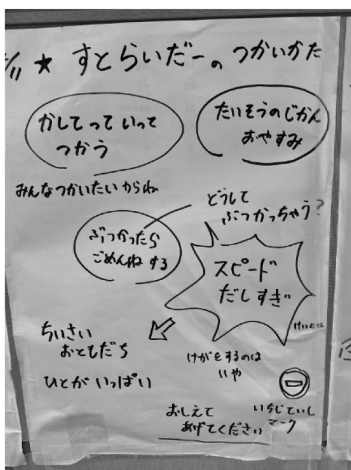 /11 ★ すとらいだーのつかいかた
かしてっていって
つかう
たいそうのじかん
おやすみ
みんなつかいたいからね
どうして
ぶつかっちゃう?
ぶつかったら
ごめんねする
スピード
だしすぎ
けいとくん
ちいさい
おともだち
ひとがいっぱい
けがをするのは
いや
おしえて
あげてください
いちじていし
マーク